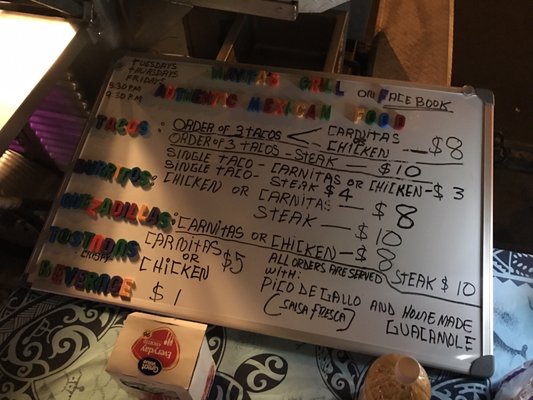 TUESDAYS
THURSDAYS
FRIDAYS
5:30 PM
9:30 PM
MAYRA'S GRILL ON FACEBOOK
AUTHENTIC MEXICAN FOOD
TACOS: ORDER OF 3 TACOS < CARNITAS OR CHICKEN — $8
ORDER OF 3 TACOS - STEAK $10
SINGLE TACO - CARNITAS OR CHICKEN - $3
SINGLE TACO - STEAK $4
BURRITOS: CHICKEN OR CARNITAS — $8
STEAK — $10
QUEZADILLAS: CARNITAS OR CHICKEN - $8
STEAK $10
TOSTIONS CARNITAS OR CHICKEN $5
CRISPY
BEVERAGE $1
ALL ORDERS ARE SERVED
WITH:
PICO DE GALLO AND HOMEMADE
(SALSA FRESCA) GUACAMOLE
Everyday